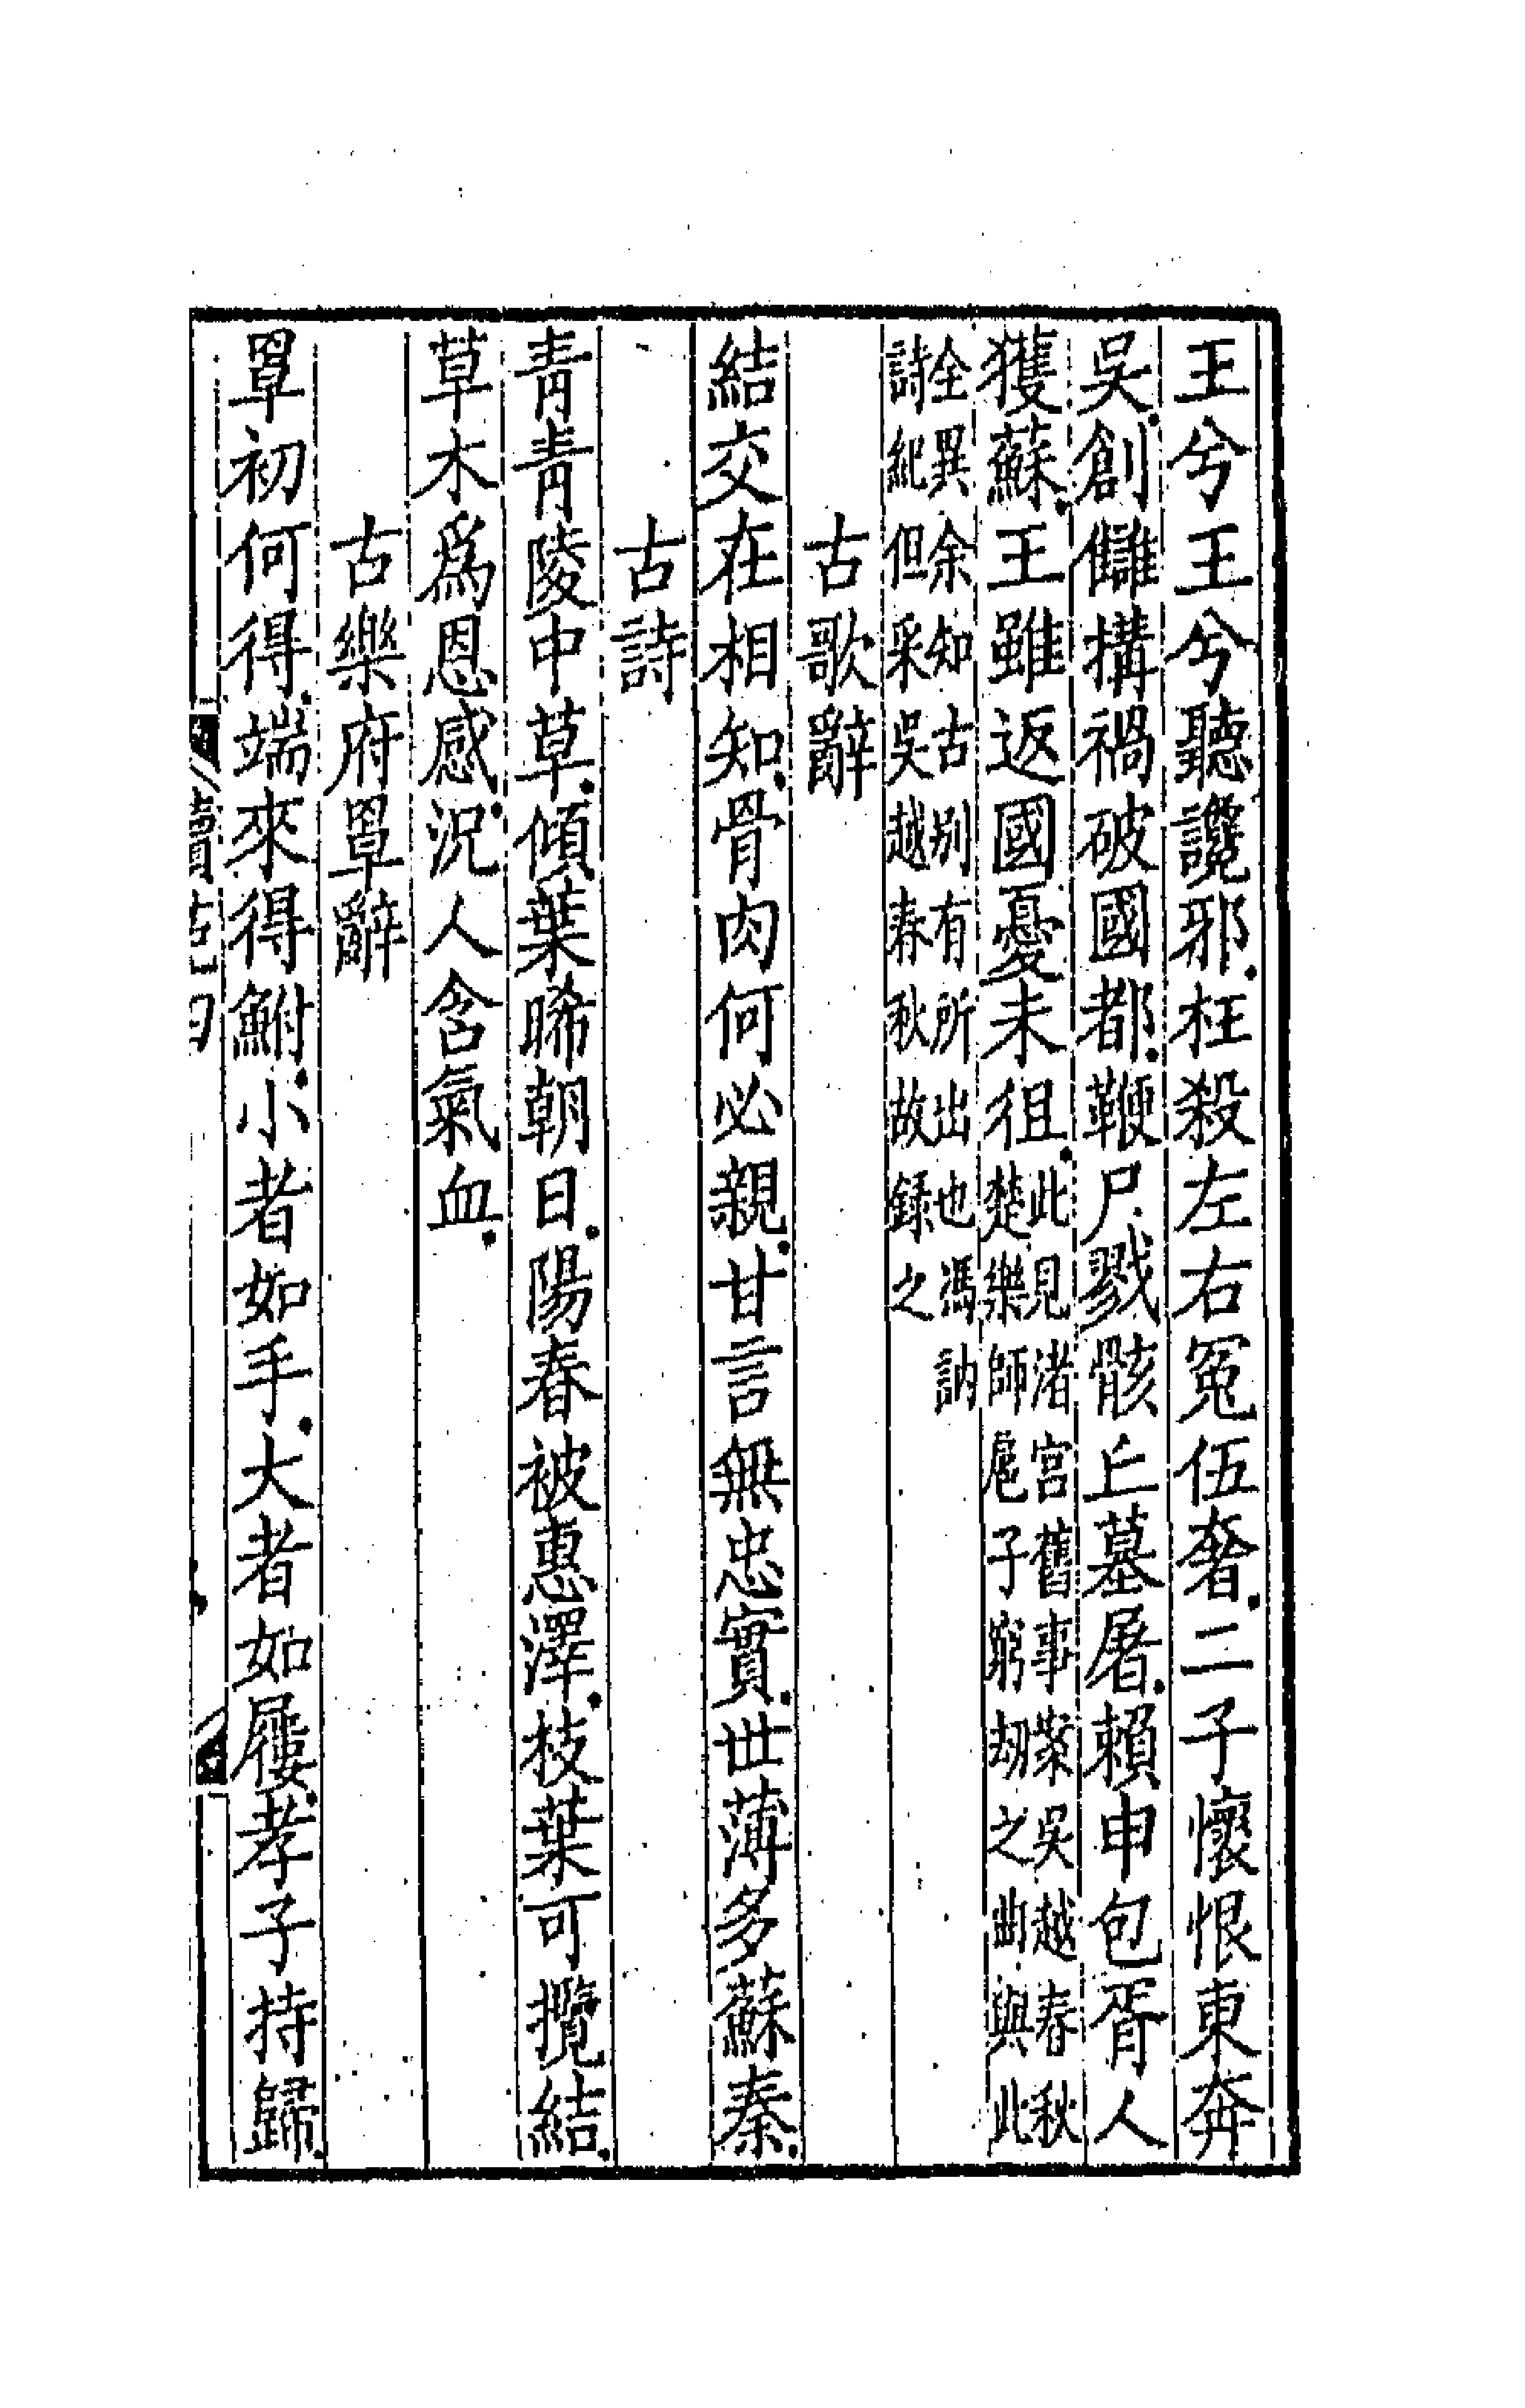 王兮王兮聽讒邪枉殺左右冤伍奢二子懷恨東奔
吳創讎搆禍破國都鞭尸戮骸丘墓屠賴申包胥人
獲蘇王雖返國憂未徂此見渚宮舊事案吳越春秋
楚樂師扈子窮刼之曲與此
全異余知古別有所出也馮訥
詩紀但采吳越春秋故録之
古歌辭
結交在相知骨肉何必親甘言無忠實世薄多蘇秦
古詩
青青陵中草傾葉晞朝日陽春被惠澤枝葉可攬結
草木爲恩感況人含氣血
古樂府罩辭
罩初何得端來得鮒小者如手大者如屨孝子持歸